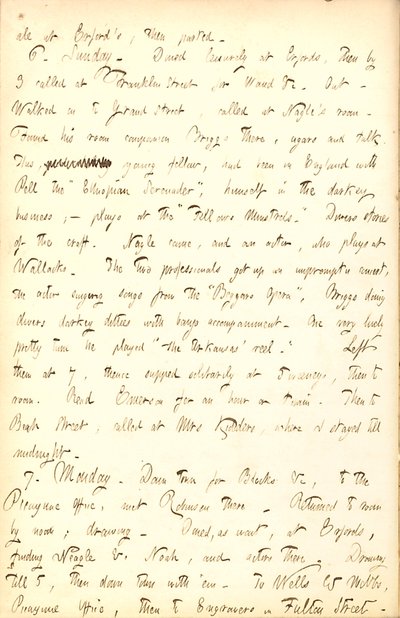 ale at Erford's, then parted.
6. Sunday. Dined leisurely at Erfords, then by
3 called at Franklin Street, for Waud &c. Out.
Walked on to Grand Street, called at Nagle's room.
Found his room companion Briggs there, cigars and talk.
This young fellow, had been in England with
Pell the "Ethiopian Serenader", himself in the darkey
business; — plays at the "Fellows Minstrels." Divers stories
of the craft. Nagle came, and an actor, who plays at
Wallacks. The two professionals got up an impromptu concert,
the actor singing songs from the "Beggars Opera", Briggs doing
divers darkey ditties with banjo accompaniment. One very lively
pretty tune he played "the Arkansas' reel." Left
them at 7, thence supped solitarily at Sweeneys, then to
room. Read Emerson for an hour or twain. Then to
Bleecker Street, called at Mrs Kidders, where I stayed till
midnight.
7. Monday. Down town for Blocks &c, to the
Picayune Office, met Robinson there. Returned to room
by noon; drawing. Dined, as wont, at Erfords,
finding Neagle & Nash, and actors there. Drawing
till 5, then down town with 'em. To Wells & Webbs,
Picayune Office, then to Engravers in Fulton Street.